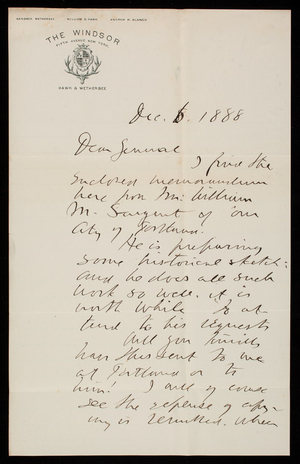 GARDNER WETHERBEE. WILLIAM G. HAWK.
THE WINDSOR
FIFTH AVENUE, NEW YORK.
HAWK & WETHERBEE
Dec. 6. 1888
Dear General
I find the
enclosed memorandum
here from Mr. William
M. Sargent of our
City of Portland.
He is preparing
some historical sketch:
and he does all such
work so well, it is
worth while to at-
tend to his requests
Will you kindly
have this sent to me
at Portland or to
him! I will of course
see the expense of copy-
ing is remitted. When